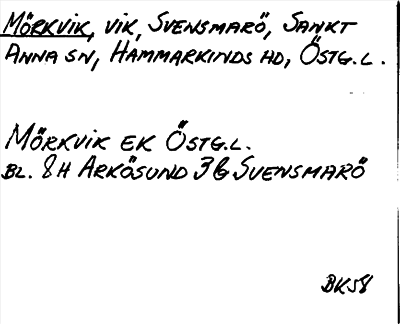 Mörkvik, vik, Svensmarö, Sankt
Anna sn, Hammarkinds hd, Östg.l.
Mörkvik ek Östg.l.
bl. 8H Arkösund 3b Svensmarö
BK58